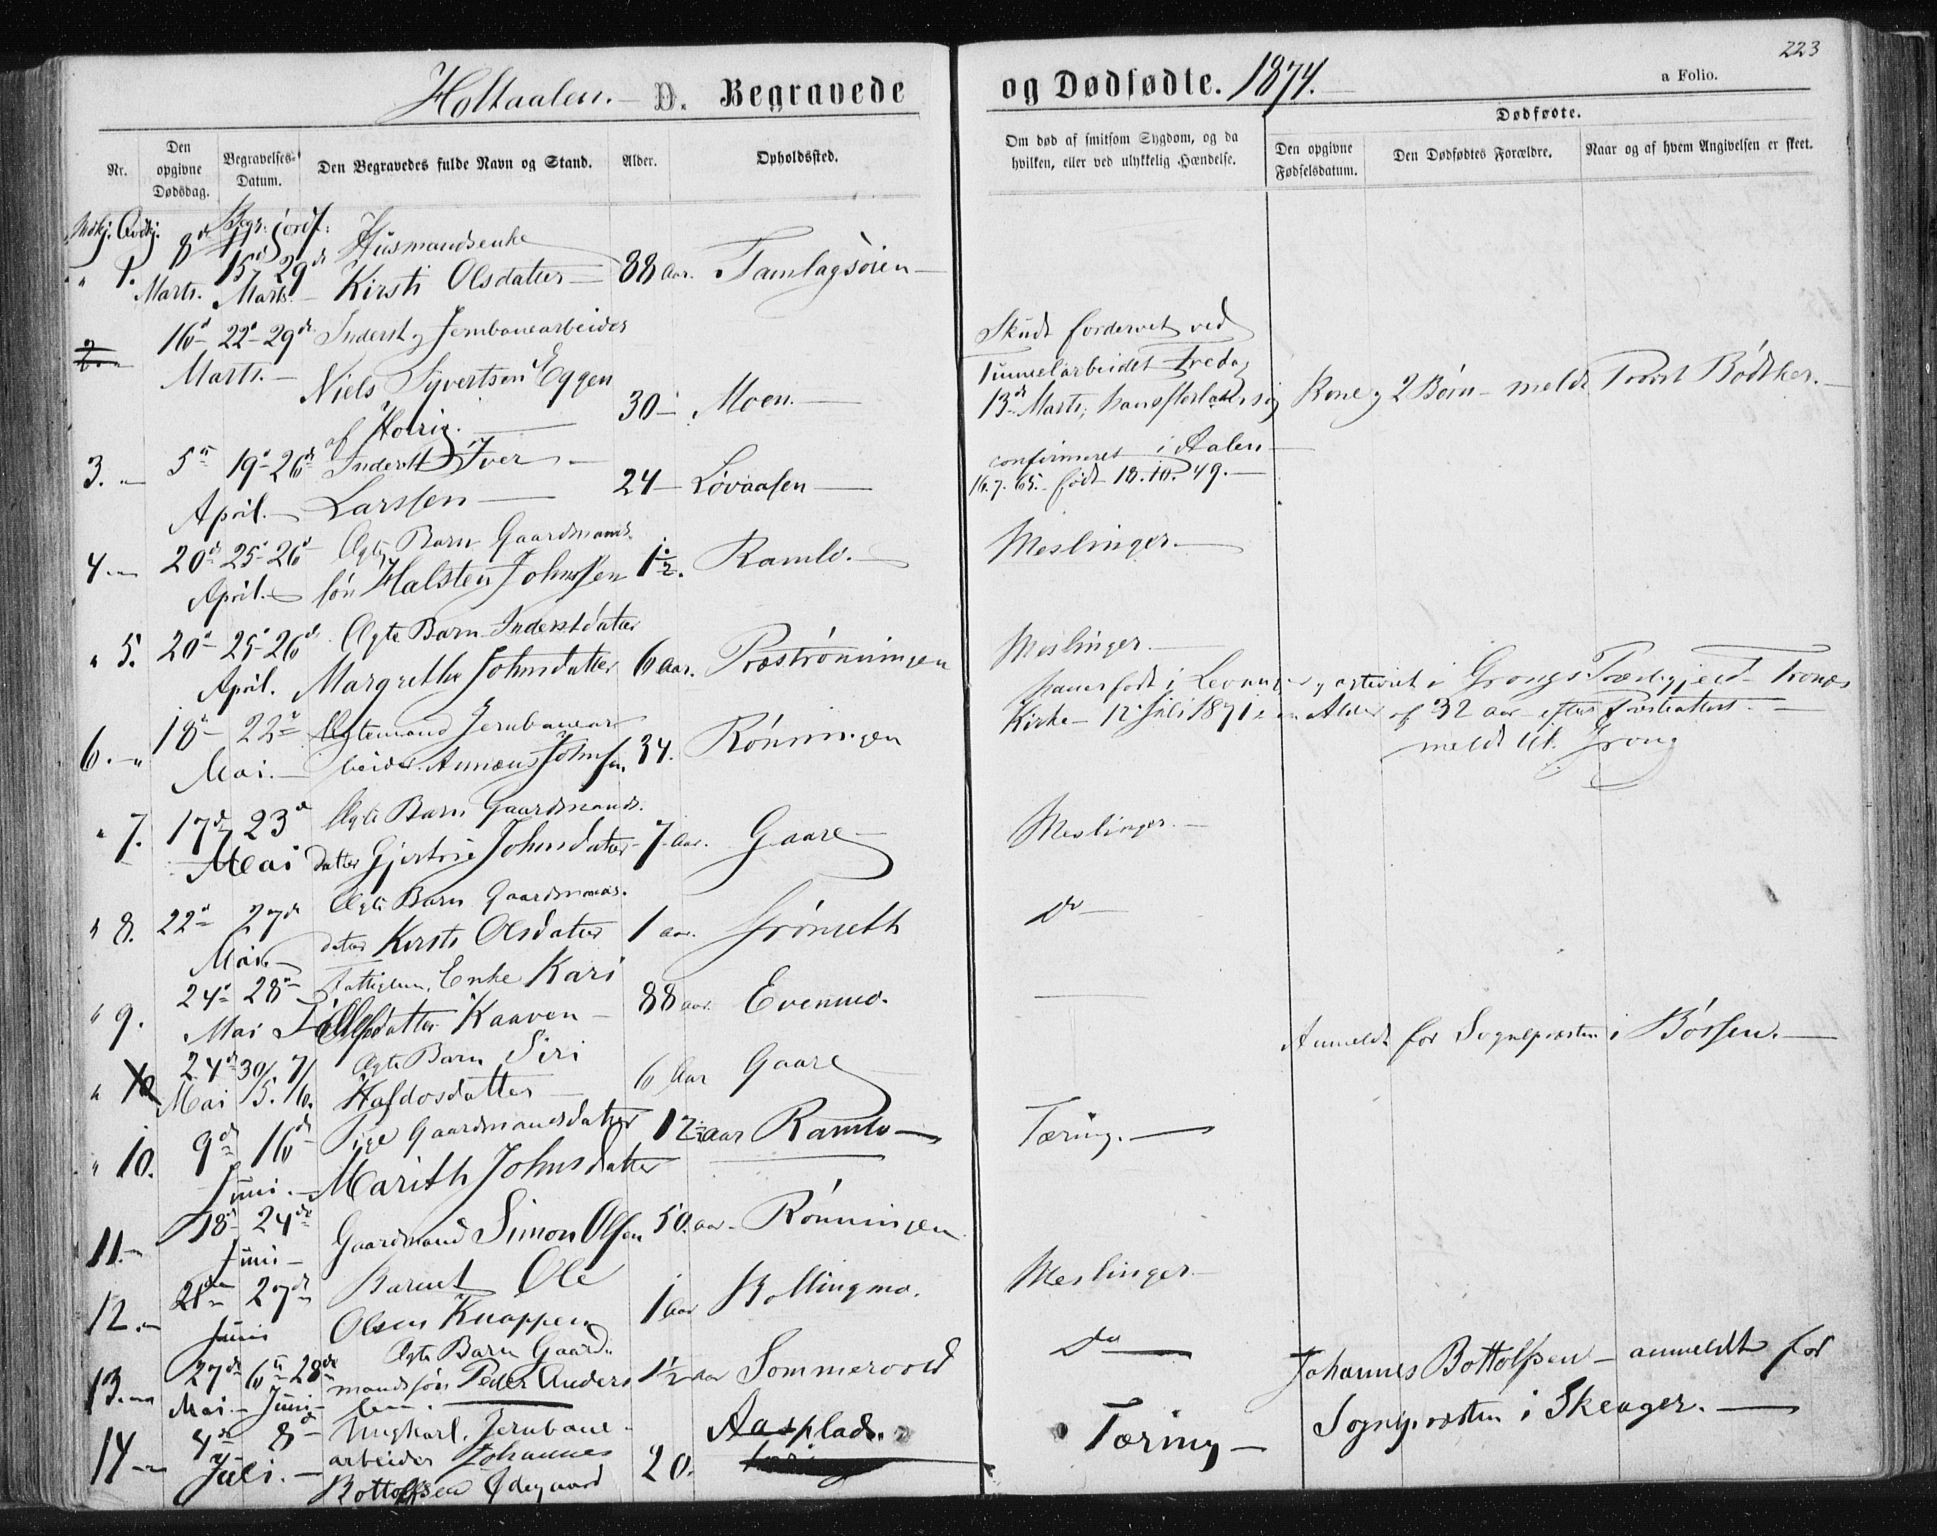 223
Holtaalen. D. Begravede og Dødfødte. 1874. a Folio.
Nr.
Den opgivne Dødsdag.
Begravelses-Datum.
Den Begravedes fulde Navn og Stand.
Alder.
Opholdssted.
Om død af smitsom Sygdom, og da hvilken, eller ved ulykkelig Hændelse.
Dødfødte.
Den opgivne Fødselsdatum.
Den Dødfødtes Forældre.
Naar og af hvem Angivelsen er skeet.
Mdkj. Qvdkj. Begr: jordf:
8de Husmandsenke
" 1. Marts. 15de 29de Marts. Kirsti Olsdatter 88 Aar. Tamlagsøien
2 16d 22d 29de Inderst og Jernbanearbeider Skudt fordervet ved
Marts. Niels Sivertsen Eggen Tunnelarbeidet Fredag
af Horrig. 30 Moen. 13de Marts; Kone og 2 Børn meldt Provst Bødtker.
3. 5te 19de 26de Inderst Iver confirmeret i Aalen
April. Larssen 24 Løvaasen 16.7.65. født 18.10.49.
4 20de 25d 26de Ægte Barn Gaardmands
April. søn Halsten Johnssen 1 1/2. Ramlo. Meslinger.
" 5. 20d 25d 26de Ægte Barn Inderstdatter Meslinger.
April. Margrethe Johnsdatter 6 aar. Præstrønningen
født i Levanger i Grongs Præstegjeld
Kirke 12 Juli 1871 Alder af 32 aar efter Præsteattest.
6. 18d 22de Ægtemand Jernbanear
Mai. beider. Johnsen. 34. Rønningen meldt til Grong
" 7. 17de 23de Ægte Barn Gaardmands.
Mai datter Johnsdatter 7 Aar. Gaare Meslinger.
" 8. 22d 27de Ægte Barn Gaardmands.
Mai. datter Kirsti Olsdatter 1 aar. Grønseth Do
" 9. 24d 28de Fattiglem. Enke Kari
Mai datter Kaaven 88 aar. Evenmo.
Anmeldt for Sognepræsten i Børsen.
" 10 24de 30/5. 7/6. Ægte Barn Siri
Mai Haldosdatter 6 Aar Gaare
" 10. 9de 16de Pige Gaardmandsdatter
Juni. Marith Johnsdatter 12 aar Ramlo Tæring.
11. 18d 24de Gaardmand Simon Olsen 50. aar. Rønningen
Juni
12. 21de 27de Barnet Ole
Juni Olsen Knappen 1 aar Kollingmo. Meslinger.
13. 27de 6te 28de Ægte Barn Gaard
Mai Juni mandssøn Peder Anders
sen. 1 1/2 aar Sommervold Do
Johannes Bottolfsen anmeldt for
14 4de 8de Ungkarl. Jernbane
Juli. arbeider Johannes
Bottolfsen Ødegaard 20. Aasplads. Tæring Sognepræsten i Skeager.